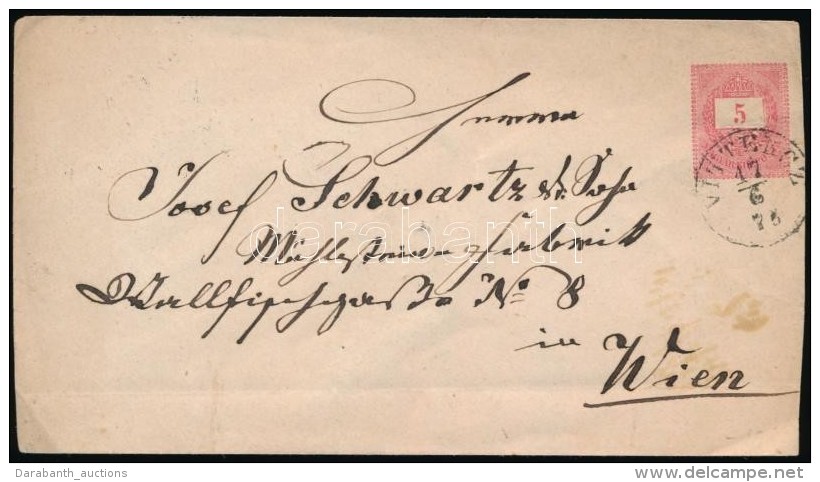 5
VITTENCZ
17
6
75
Firma
Josef Schwartz & Sohn
Mühlsteinfabrik
Wallfischgasse No 8
in
Wien
darabanth
Darabanth_auctions
©delcampe.net